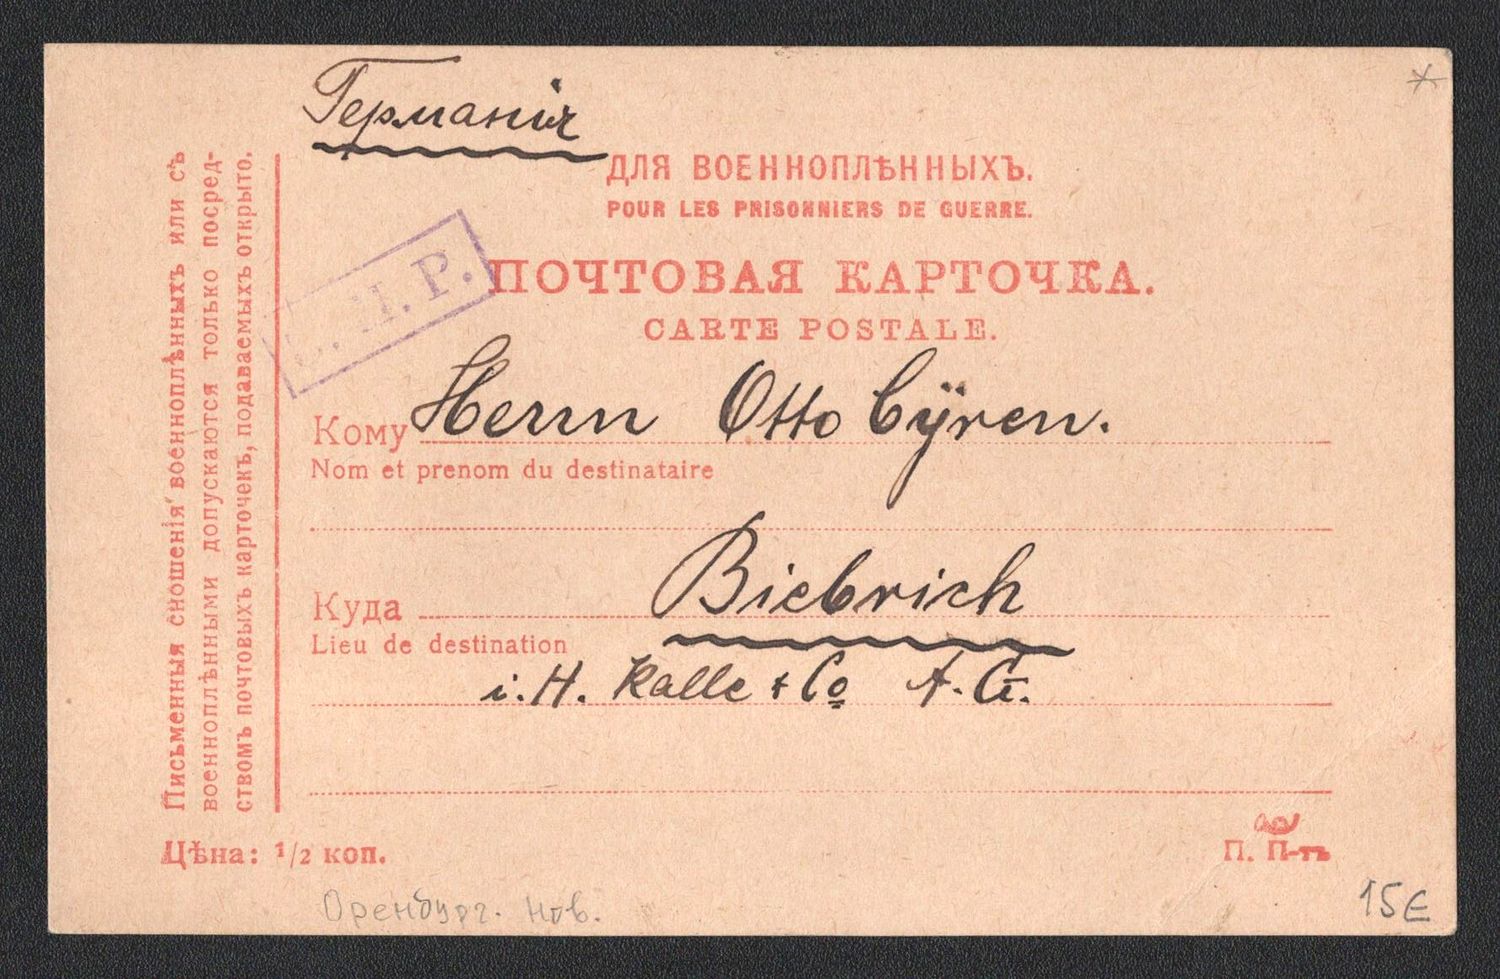 Германія
ДЛЯ ВОЕННОПЛѢННЫХЪ.
POUR LES PRISONNIERS DE GUERRE.
ПОЧТОВАЯ КАРТОЧКА.
CARTE POSTALE.
Н. Р.
Кому Herrn Otto Cÿren.
Nom et prenom du destinataire
Куда Biebrich
Lieu de destination
i. H. Kalle & Co A. G.
Письменныя сношенія военноплѣнныхъ или съ
военноплѣнными допускаются только посред-
ствомъ почтовыхъ карточекъ, подаваемыхъ открыто.
Цѣна: 1/2 коп.
П. П-тъ
Оренбург. Нов.
15€